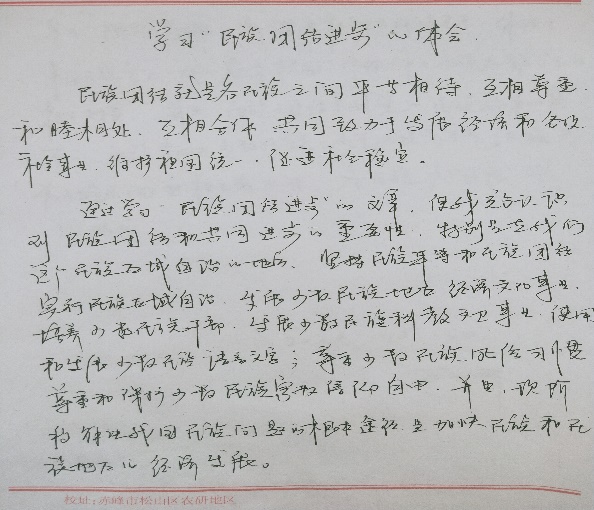 学习“民族团结进步”心体会
民族团结就是各民族之间平等相待、互相尊重、
和睦相处、互相合作、共同致力于发展经济和各项
社会事业、维护祖国统一、促进社会稳定。
通过学习“民族团结进步”的文章，使我充分认识
到民族团结和共同进步的重要性，特别是在我们
这个民族区域自治的地方。坚持民族平等和民族团结
实行民族区域自治、发展少数民族地区经济文化事业、
培养少数民族干部、发展少数民族科教文卫事业、使用
和发展少数民族语言文字；尊重少数民族风俗习惯
尊重和保护少数民族宗教信仰自由。并且，现阶
段解决我国民族问题的根本途径是加快民族和民
族地区的经济发展。
校址：赤峰市松山区农研地区